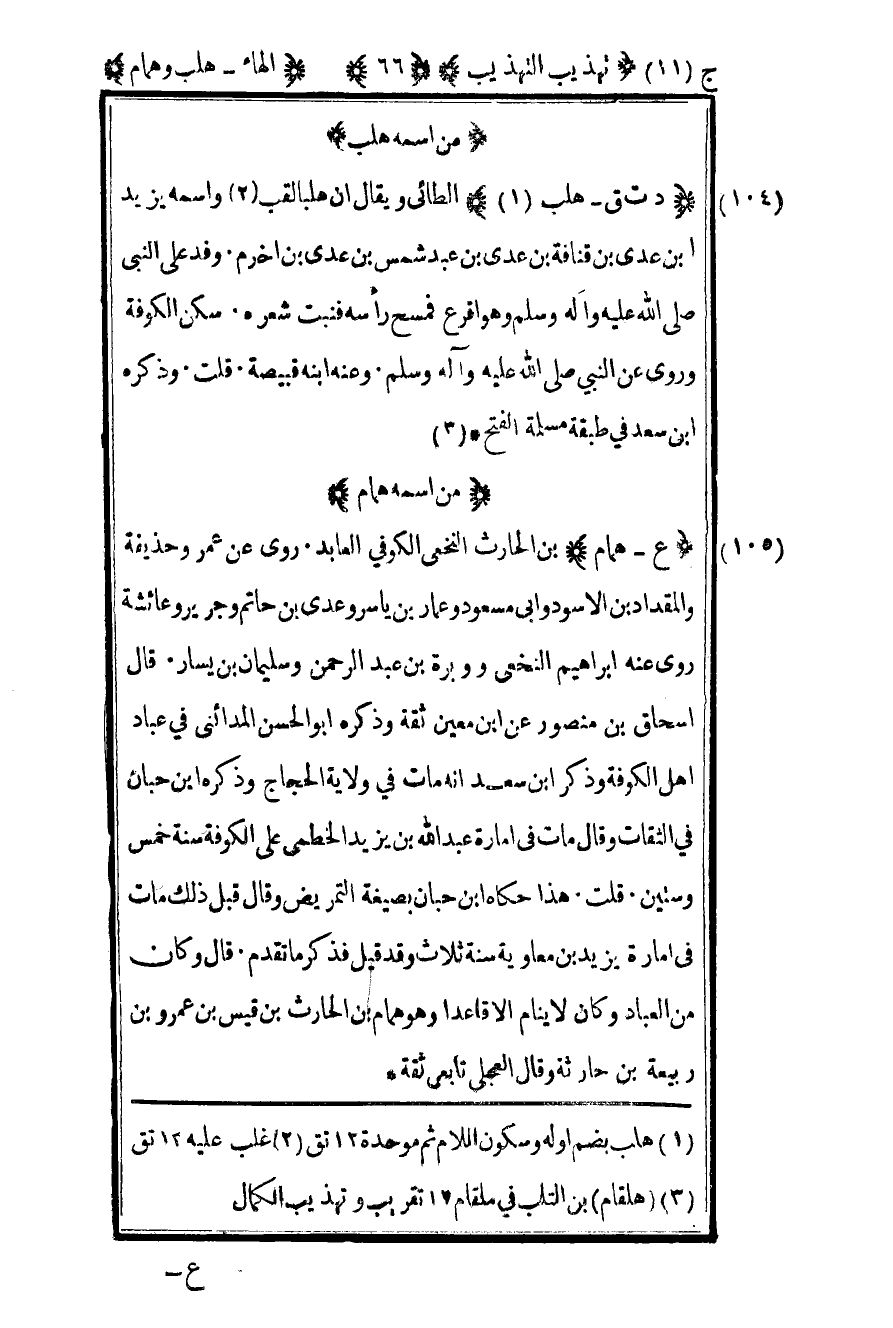 ج (١١) ﴿ تهذيب التهذيب ﴾ ﴿ ٦٦ ﴾ ﴿ الهاء ـ هلب وهمام ﴾
﴿ من اسمه هلب ﴾
(١٠٤) ﴿ د ت ق ـ هلب (١) ﴾ الطائى ويقال ان هلبا لقب (٢) واسمه يزيد
ابن عدى بن قنافة بن عدى بن عبد شمس بن عدى بن اخرم ٠ وفد على النبى
صلى الله عليه وآله وسلم وهو اقرع فمسح رأسه فنبت شعره ٠ سكن الكوفة
وروى عن النبي صلى الله عليه وآله وسلم ٠ وعنه ابنه قبيصة ٠ قلت ٠ وذكره
ابن سعد في طبقة مسلمة الفتح * (٣)
﴿ من اسمه همام ﴾
(١٠٥) ﴿ ع ـ همام ﴾ بن الحارث النخعى الكوفي العابد ٠ روى عن عمر وحذيفة
والمقداد بن الاسود وابى مسعود وعمار بن ياسر وعدى بن حاتم وجرير وعائشة
روى عنه ابراهيم النخعى ووبرة بن عبد الرحمن وسليمان بن يسار ٠ قال
اسحاق بن منصور عن ابن معين ثقة وذكره ابو الحسن المدائنى في عباد
اهل الكوفة وذكر ابن سعد انه مات في ولاية الحجاج وذكره ابن حبان
في الثقات وقال مات فى امارة عبد الله بن يزيد الخطمى على الكوفة سنة خمس
وستين ٠ قلت ٠ هذا حكاه ابن حبان بصيغة التمريض وقال قبل ذلك مات
فى امارة يزيد بن معاوية سنة ثلاث وقد قيل فذكر ما تقدم ٠ قال وكان
من العباد وكان لا ينام الا قاعدا وهو همام بن الحارث بن قيس بن عمرو بن
ربيعة بن حارثة وقال العجلى تابعى ثقة *
(١) هلب بضم اوله وسكون اللام ثم موحدة ١٢ تق (٢) غلب عليه ١٢ تق
(٣) (هلقام) بن التلب في ملقام ١٢ تقريب وتهذيب الكمال
ع ـ